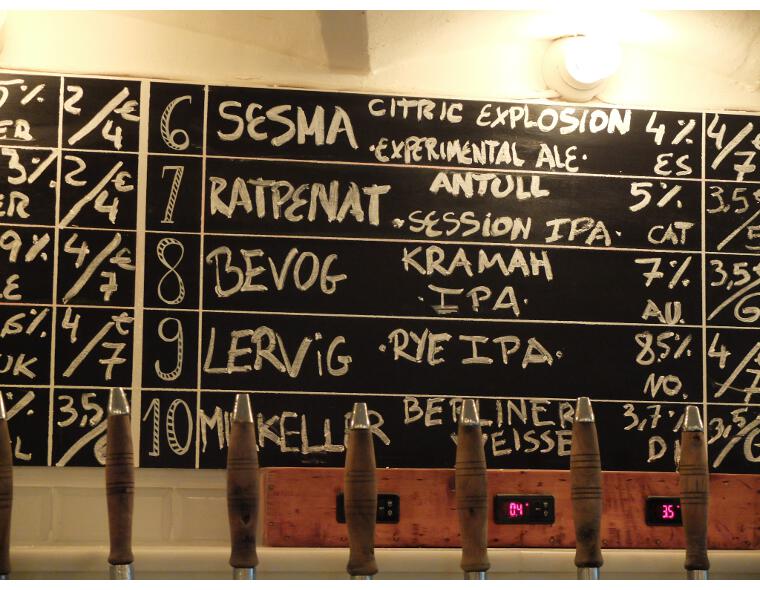 5% 2/€4 6 SESMA CITRIC EXPLOSION 4% 4/€7
ER ·EXPERIMENTAL ALE· ES
3% 2/€4 7 RATPENAT ANTULL 5% 3,5€/5
ER ·SESSION IPA· CAT
9% 4/€7 8 BEVOG KRAMAH 7% 3,5€/6
·IPA· AU.
4/€7 9 LERVIG ·RYE IPA· 8,5% 4/€7
UK NO.
% 3,5/6 10 MIKKELLER BERLINER 3,7% 3,5/6
WEISSE
0.4° 3.5°